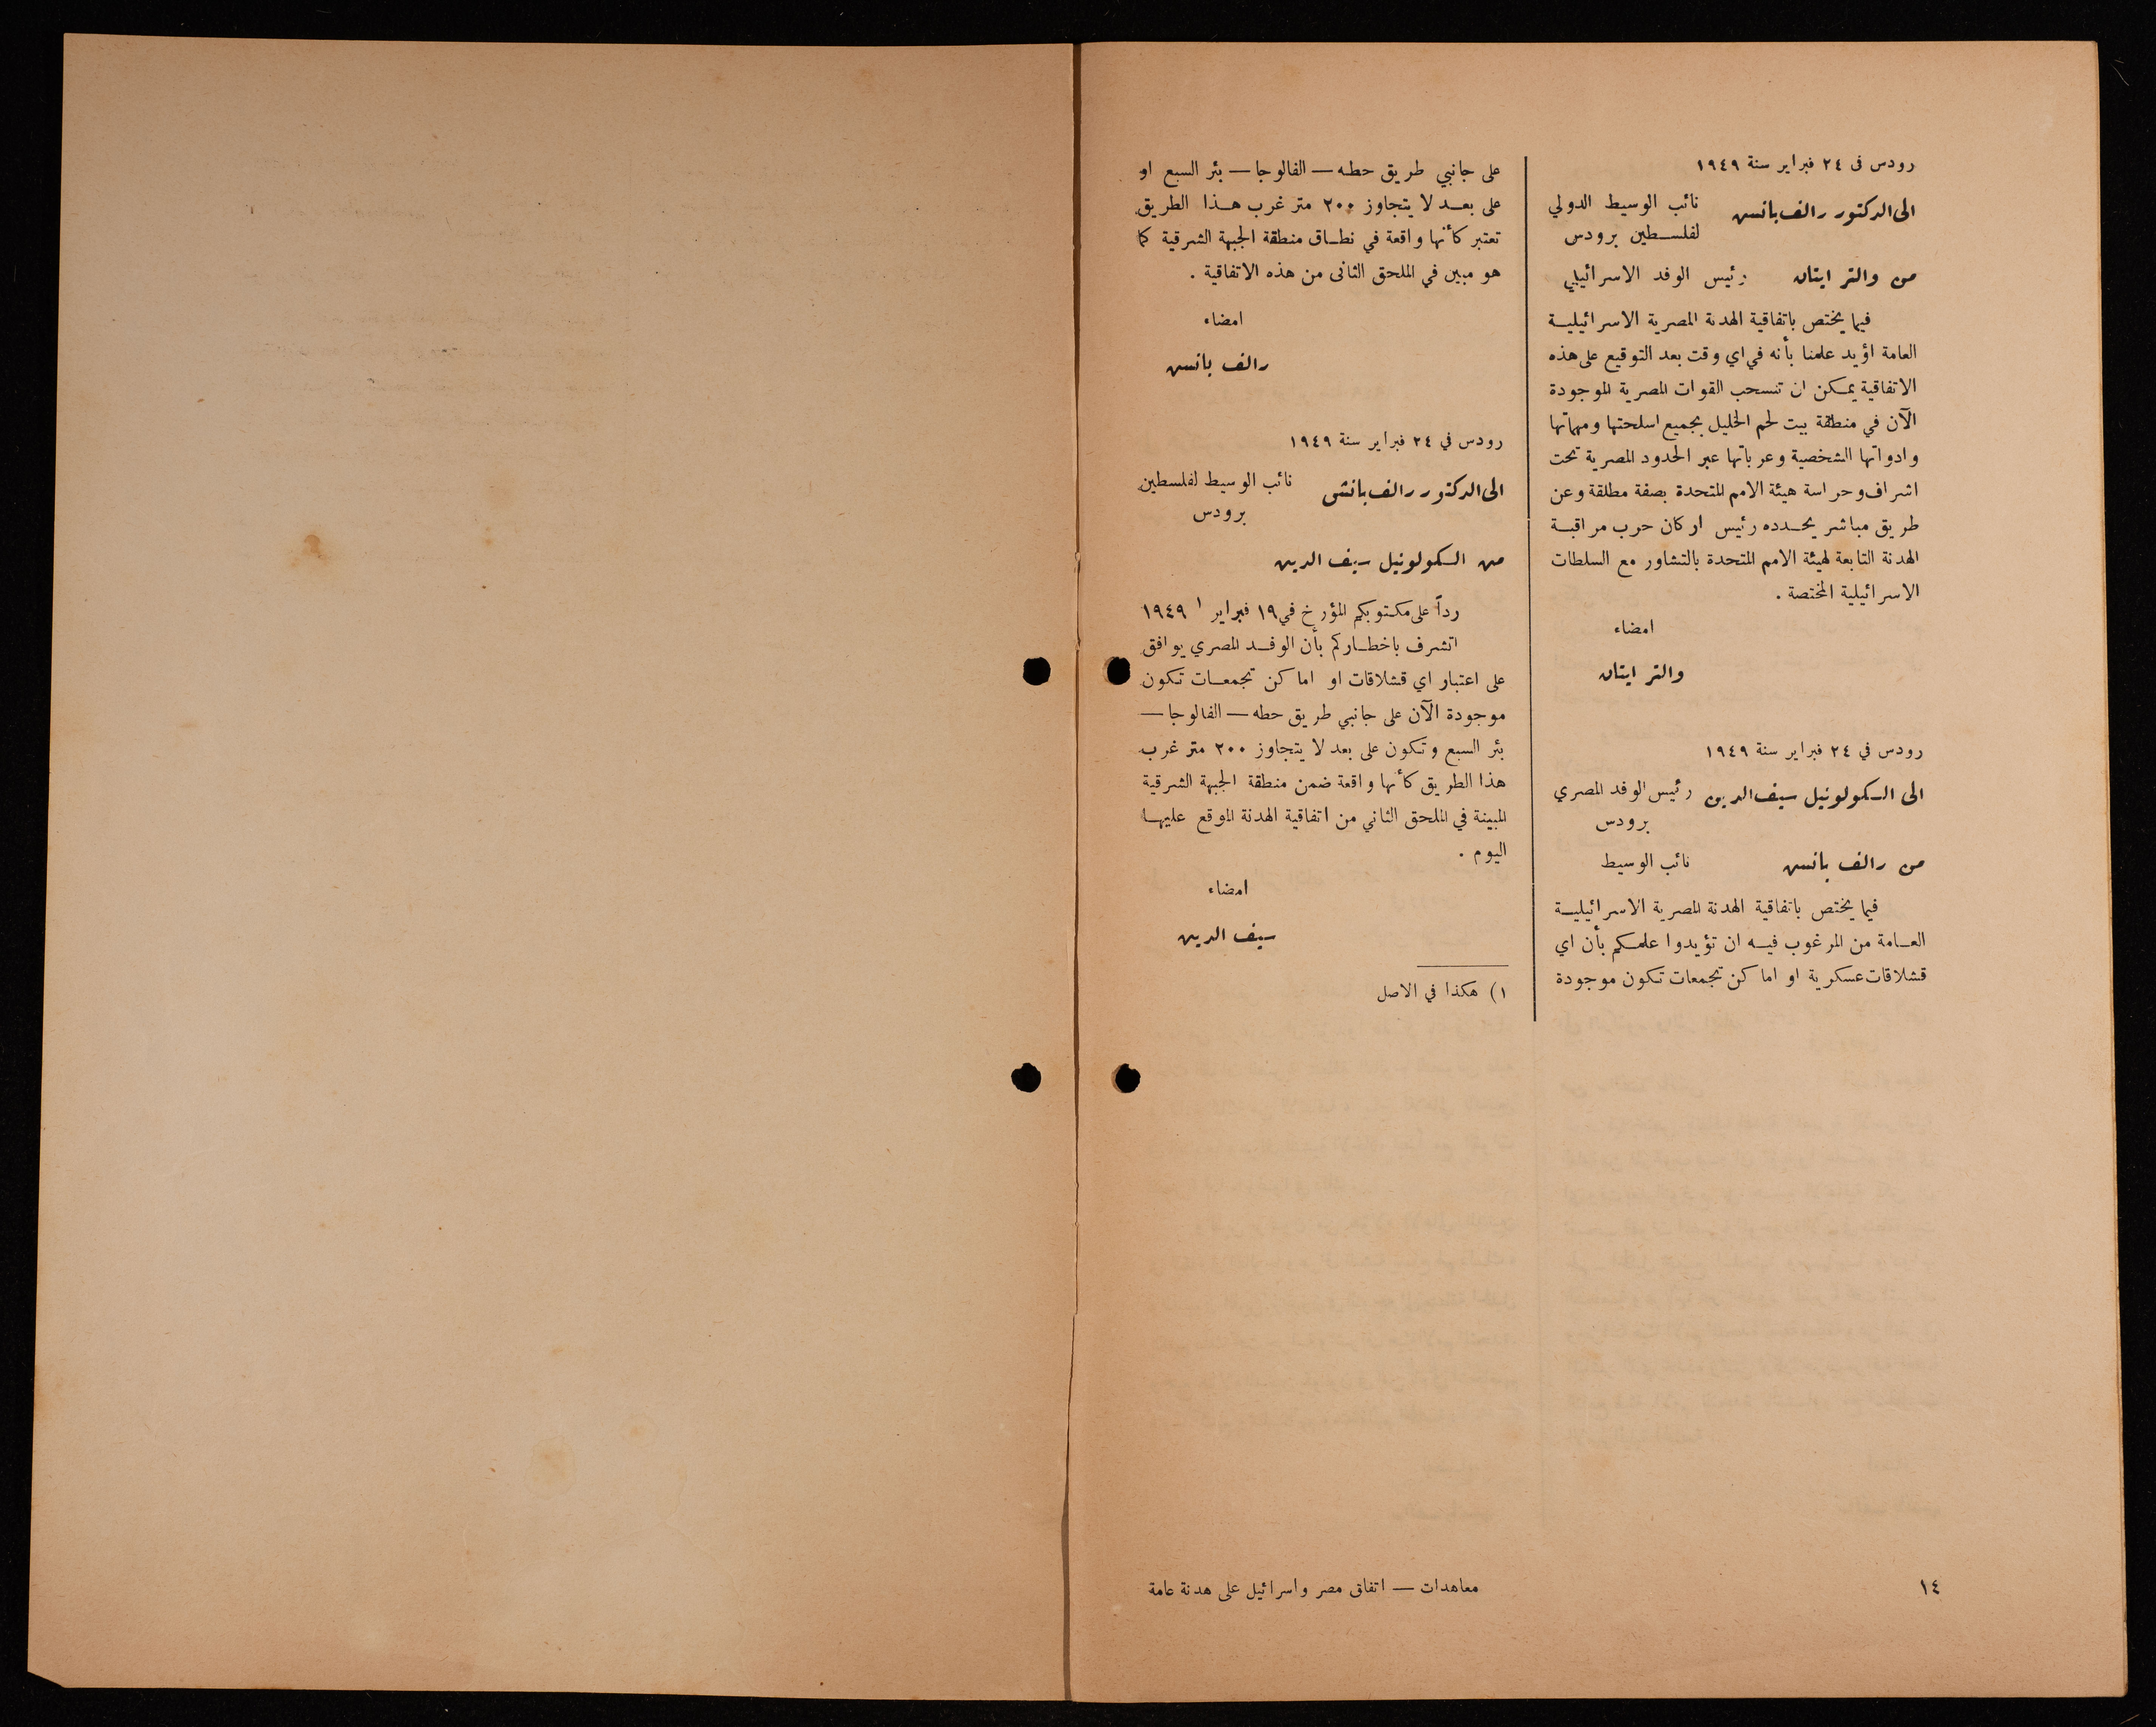 رودس فى ٢٤ فبراير سنة ١٩٤٩
الى الدكتور رالف بانسن نائب الوسيط الدولي
لفلسطين برودس
من والتر ايتان رئيس الوفد الاسرائيلي
فيما يختص باتفاقية الهدنة المصرية الاسرائيلية
العامة اؤيد علمنا بأنه في اي وقت بعد التوقيع على هذه
الاتفاقية يمكن ان تنسحب القوات المصرية الموجودة
الآن في منطقة بيت لحم الخليل بجميع اسلحتها ومهماتها
وادواتها الشخصية وعرباتها عبر الحدود المصرية تحت
اشراف وحراسة هيئة الامم المتحدة بصفة مطلقة وعن
طريق مباشر يحدده رئيس اركان حرب مراقبة
الهدنة التابعة لهيئة الامم المتحدة بالتشاور مع السلطات
الاسرائيلية المختصة .
امضاء
والتر ايتان
رودس في ٢٤ فبراير سنة ١٩٤٩
الى الكولونيل سيف الدين رئيس الوفد المصري
برودس
من رالف بانسن نائب الوسيط
فيما يختص باتفاقية الهدنة المصرية الاسرائيلية
العامة من المرغوب فيه ان تؤيدوا علمكم بأن اي
قشلاقات عسكرية او اماكن تجمعات تكون موجودة
على جانبي طريق حطه — الفالوجا — بئر السبع او
على بعد لا يتجاوز ٢٠٠ متر غرب هذا الطريق
تعتبر كأنها واقعة في نطاق منطقة الجبهة الشرقية كما
هو مبين في الملحق الثانى من هذه الاتفاقية .
امضاء
رالف بانسن
رودس في ٢٤ فبراير سنة ١٩٤٩
الى الدكتور رالف بانش نائب الوسيط لفلسطين
برودس
من الكولونيل سيف الدين
رداً على مكتوبكم المؤرخ في ١٩ فبراير ١ ١٩٤٩
اتشرف باخطاركم بأن الوفد المصري يوافق
على اعتبار اي قشلاقات او اماكن تجمعات تكون
موجودة الآن على جانبي طريق حطه — الفالوجا —
بئر السبع وتكون على بعد لا يتجاوز ٢٠٠ متر غرب
هذا الطريق كأنها واقعة ضمن منطقة الجبهة الشرقية
المبينة في الملحق الثاني من اتفاقية الهدنة الموقع عليها
اليوم .
امضاء
سيف الدين
١) هكذا في الاصل
١٤
معاهدات — اتفاق مصر واسرائيل على هدنة عامة